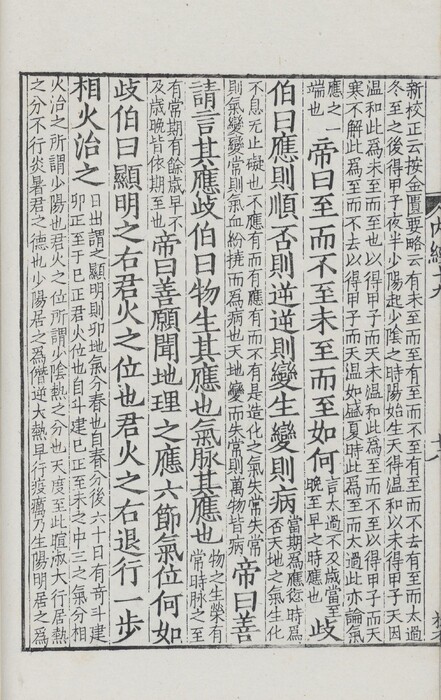 新校正云按金匱要略云有未至而至有至而不至有至而不去有至而太過
冬至之後得甲子夜半少陽起少陰之時陽始生天得溫和以未得甲子天因
溫和此爲未至而至也以得甲子而天未溫和此爲至而不至以得甲子而天
寒不解此爲至而不去以得甲子而天溫如盛夏時此爲至而太過此亦論氣
應之一端也帝曰至而不至未至而至如何言太過不及歲當至晚至早之時應也歧
伯曰應則順否則逆逆則變生變則病當期爲應愆時爲否天地之氣生化
不息无止礙也不應有而有應有而不有是造化之氣失常失常則氣變變常則氣血紛撓而爲病也天地變而失常則萬物皆病帝曰善
請言其應歧伯曰物生其應也氣脉其應也物之生榮有常時脉之至
有常期有餘歲早不及歲晚皆依期至也帝曰善願聞地理之應六節氣位何如
歧伯曰顯明之右君火之位也君火之右退行一步
相火治之日出謂之顯明則卯地氣分春也自春分後六十日有奇斗建卯正至于巳正君火位也自斗建巳正至未之中三之氣分相
火治之所謂少陽也君火之位所謂少陰熱之分也天度至此暄淑大行居熱
之分不行炎暑君之德也少陽居之爲僭逆大熱早行疫癘乃生陽明居之爲